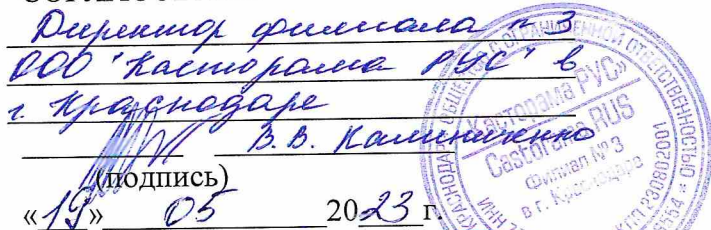 Директор филиала № 3
ООО "Касторама РУС" в
г. Краснодаре
В.В. Калиниченко
(подпись)
«19» 05 2023 г.
ОГРАНИЧЕННОЙ ОТВЕТСТВЕННОСТЬЮ
Касторама РУС»
Castorama RUS
Филиал № 3
в г. Краснодаре
КПП 230802001